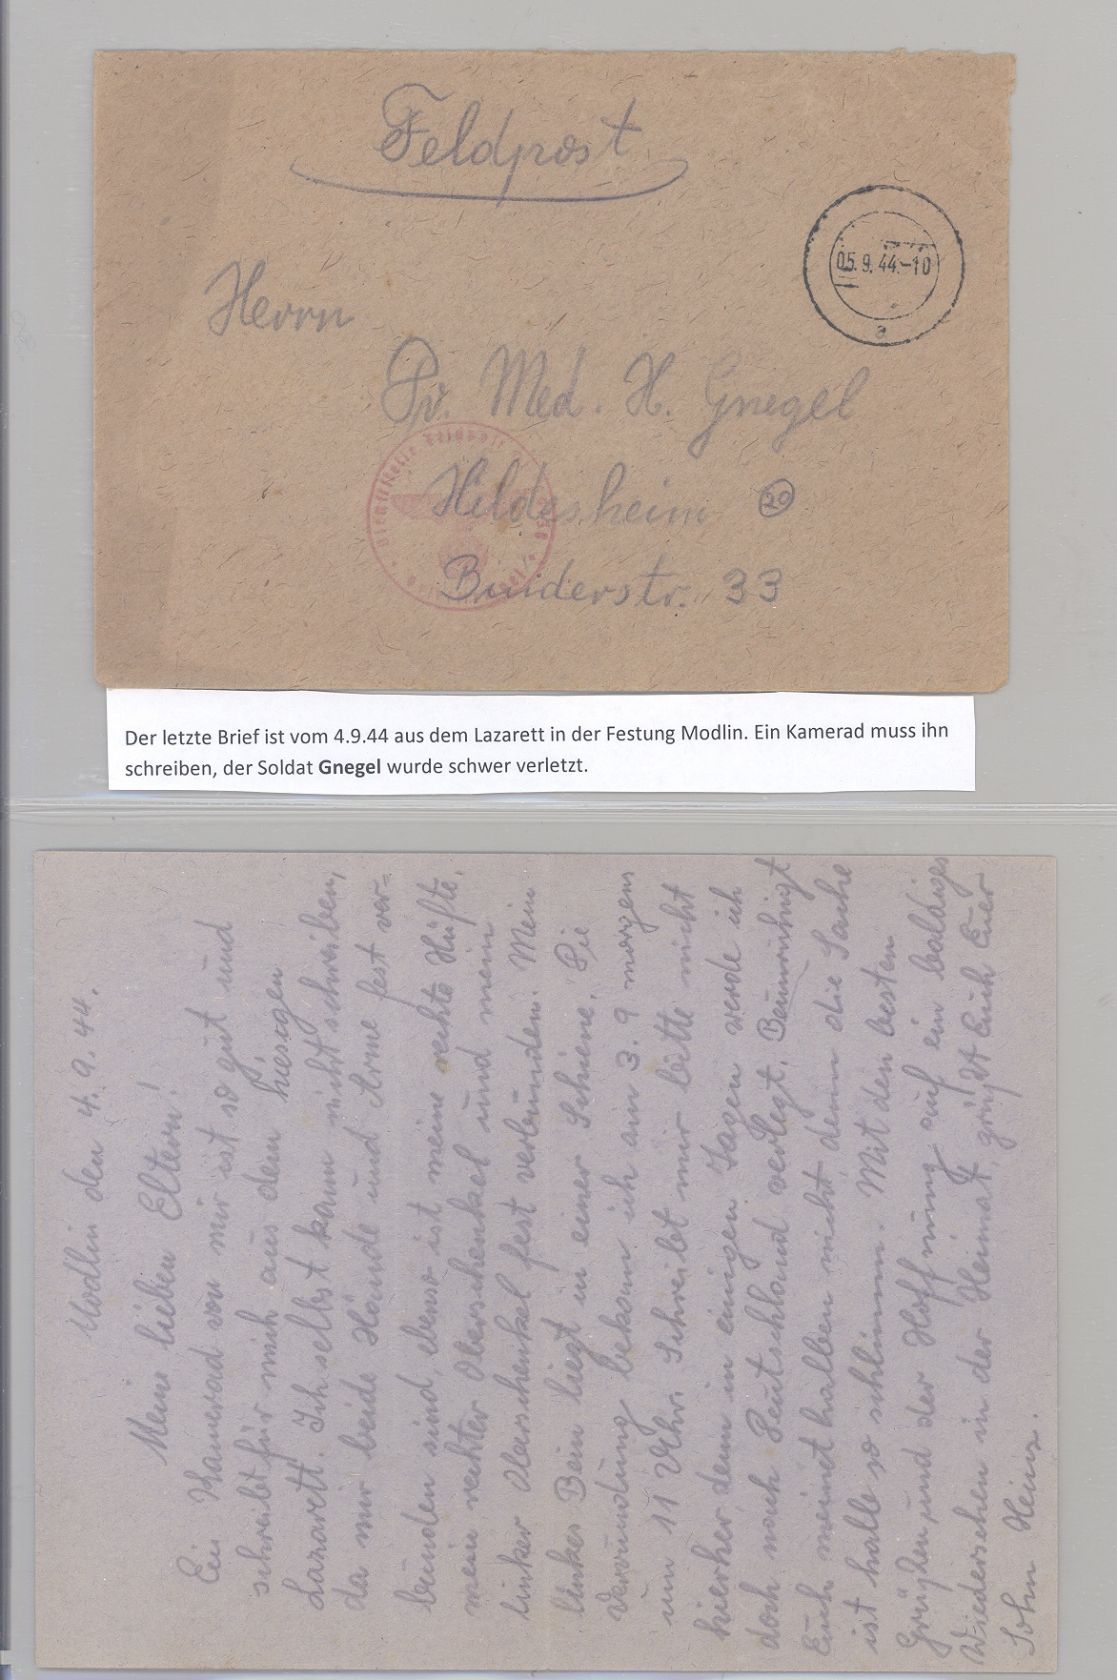 Feldpost
05.9.44.-10
a
Herrn
Dr. Med. H. Gnegel
Hildesheim 20
Binderstr. 33
Der letzte Brief ist vom 4.9.44 aus dem Lazarett in der Festung Modlin. Ein Kamerad muss ihn
schreiben, der Soldat Gnegel wurde schwer verletzt.
Modlin den 4.9.44.
Meine lieben Eltern!
Ein Kamerad von mir ist so gut und
schreibt für mich aus dem hiesigen
Lazarett. Ich selbst kann nicht schreiben,
da mir beide Hände und Arme fest ver=
bunden sind, ebenso ist meine rechte Hüfte,
mein rechter Oberschenkel und mein
linker Oberschenkel fest verbunden. Mein
linkes Bein liegt in einer Schiene. Die
Verwundung bekam ich am 3.9 morgens
um 11 Uhr. Schreibt mir bitte nicht
hierher denn in einigen Tagen werde ich
doch nach Deutschland verlegt. Beunruhigt
Euch meinethalben nicht, denn die Sache
ist halb so schlimm. Mit den besten
Grüßen und der Hoffnung auf ein baldiges
Wiedersehen in der Heimat, grüßt Euch Euer
Sohn Heinz.